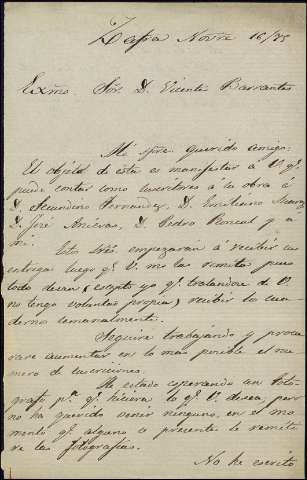 Zafra Novre 16/75
Exmo. Sor. D. Vicente Barrantes
Mi spre. querido amigo:
El objeto de esta es manifestar a V. qe.
puede contar como suscritores a la obra á
D. Secundino Fernandez, D. Emiliano
D. José D. Pedro Roncal y a
mi.
Estos tres empezarán á recibir su
entrega luego qe. V. me las remita pues
todo desean (escepto yo qe. tratandose de V.
no tengo voluntad propia) recibir los cua
dernos semanalmente.
Seguiré trabajando y procu
rare aumentar en lo mas posible el nu
mero de suscriciones.
He estado esperando un fotó-
grafo pa. qe. hiciera lo qe. V. desea, pero
no ha querido venir ninguno, en el mo
mento qe. alguno se presente le remiti
re las fotografias.
No he escrito